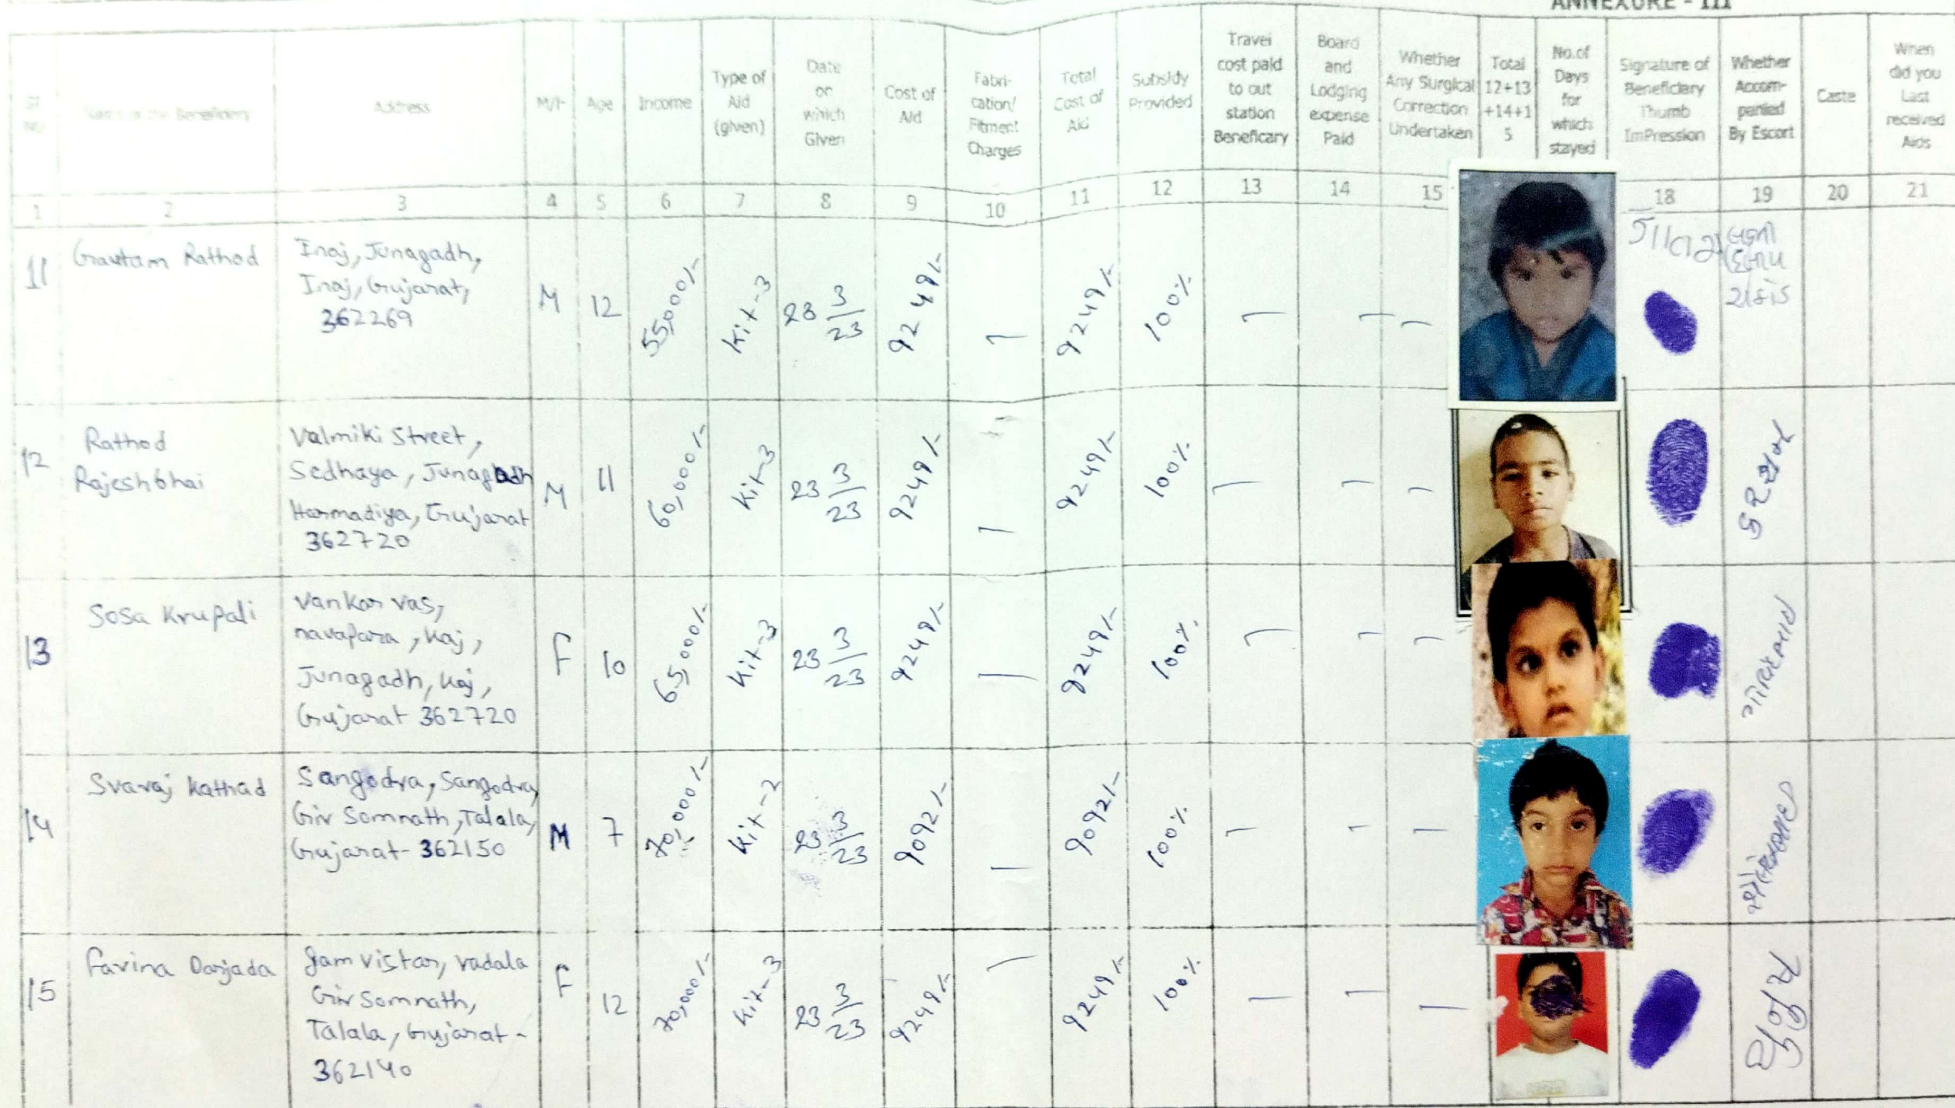 ANNEXURE - III
Sl No. Name of the Beneficiary Address M/F Age Income Type of Aid (given) Date on which Given Cost of Aid Fabri-cation/ Fitment Charges Total Cost of Aid Subsidy Provided Travel cost paid to out station Beneficary Board and Lodging expense Paid Whether Any Surgical Correction Undertaken Total 12+13 +14+1 5 No.of Days for which stayed Signature of Beneficiary Thumb ImPression Whether Accom-panied By Escort Caste When did you Last received Aids
1 2 3 4 5 6 7 8 9 10 11 12 13 14 15 18 19 20 21
11 Gautam Rathod
Inaj, Junagadh,
Inaj, Gujarat,
362269
M 12 55,000/- Kit-3 23 3/23 9249/- — 9249/- 100% — — —
12 Rathod
Rajeshbhai
Valmiki Street,
Sedhaya, Junagadh
Harmadiya, Gujarat
362720
M 11 60,000/- Kit-3 23 3/23 9249/- — 9249/- 100% — — —
13 Sosa Krupali
Vankar vas,
navapara, Kaj,
Junagadh, Kaj,
Gujarat 362720
F 10 65,000/- Kit-3 23 3/23 9249/- — 9249/- 100% — — —
14 Svaraj Kathad
Sangodra, Sangodra,
Gir Somnath, Talala,
Gujarat- 362150
M 7 70,000/- Kit-2 23 3/23 9092/- — 9092/- 100% — — —
15 Farina Darjada
Jam vistar, vadala
Gir Somnath,
Talala, Gujarat-
362140
F 12 70,000/- Kit-3 23 3/23 9249/- — 9249/- 100% — — —